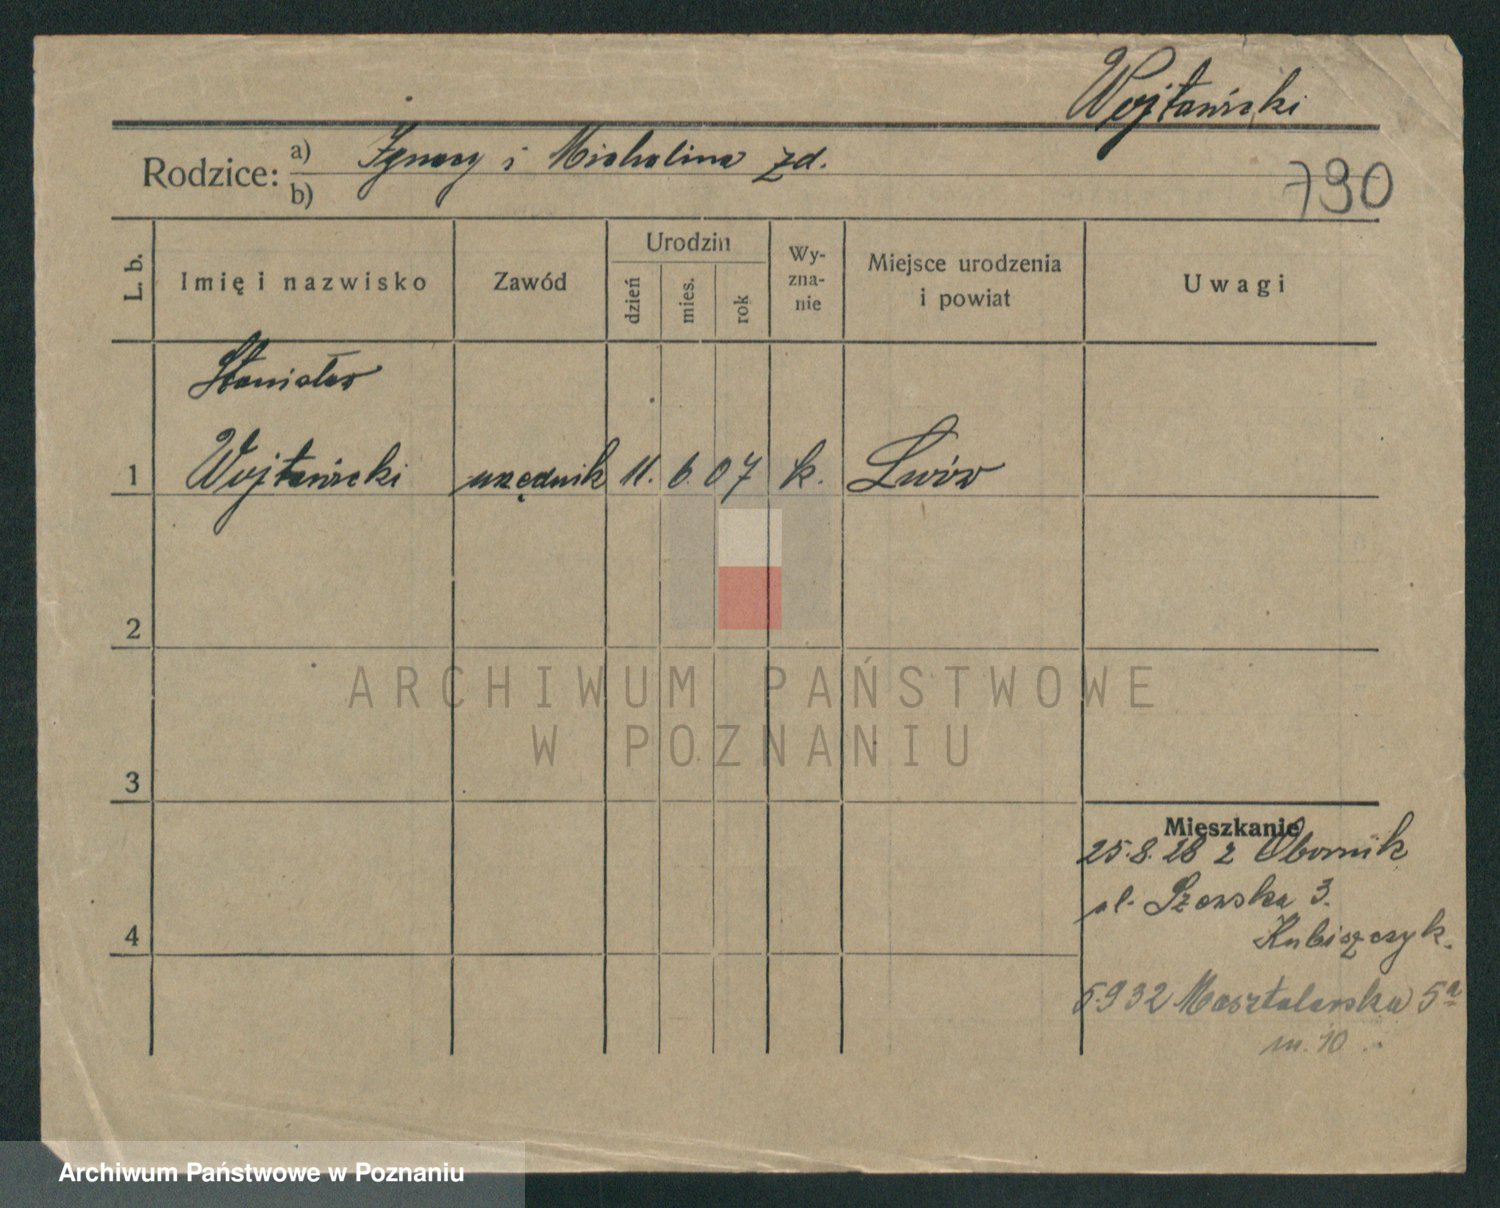 Wojtanicki
Rodzice: a) Ignacy i Michalina zd.
b)
790
L. b. Imię i nazwisko Zawód Urodzin dzień mies. rok Wy-zna-nie Miejsce urodzenia i powiat Uwagi
Stanisław
1 Wojtanicki urzędnik 11. 6. 07 k. Lwów
2
ARCHIWUM PAŃSTWOWE
W POZNANIU
3
Mieszkanie
25.8.28 z Obornik
ul. Szewska 3.
4
Kubiszczyk.
5.932 Masztalarska 5a
m. 10
Archiwum Państwowe w Poznaniu